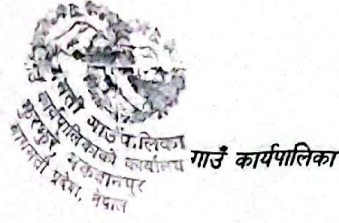 गाउँपालिका
कार्यपालिकाको कार्यालय
मकवानपुर
बागमती प्रदेश, नेपाल
गाउँ कार्यपालिका